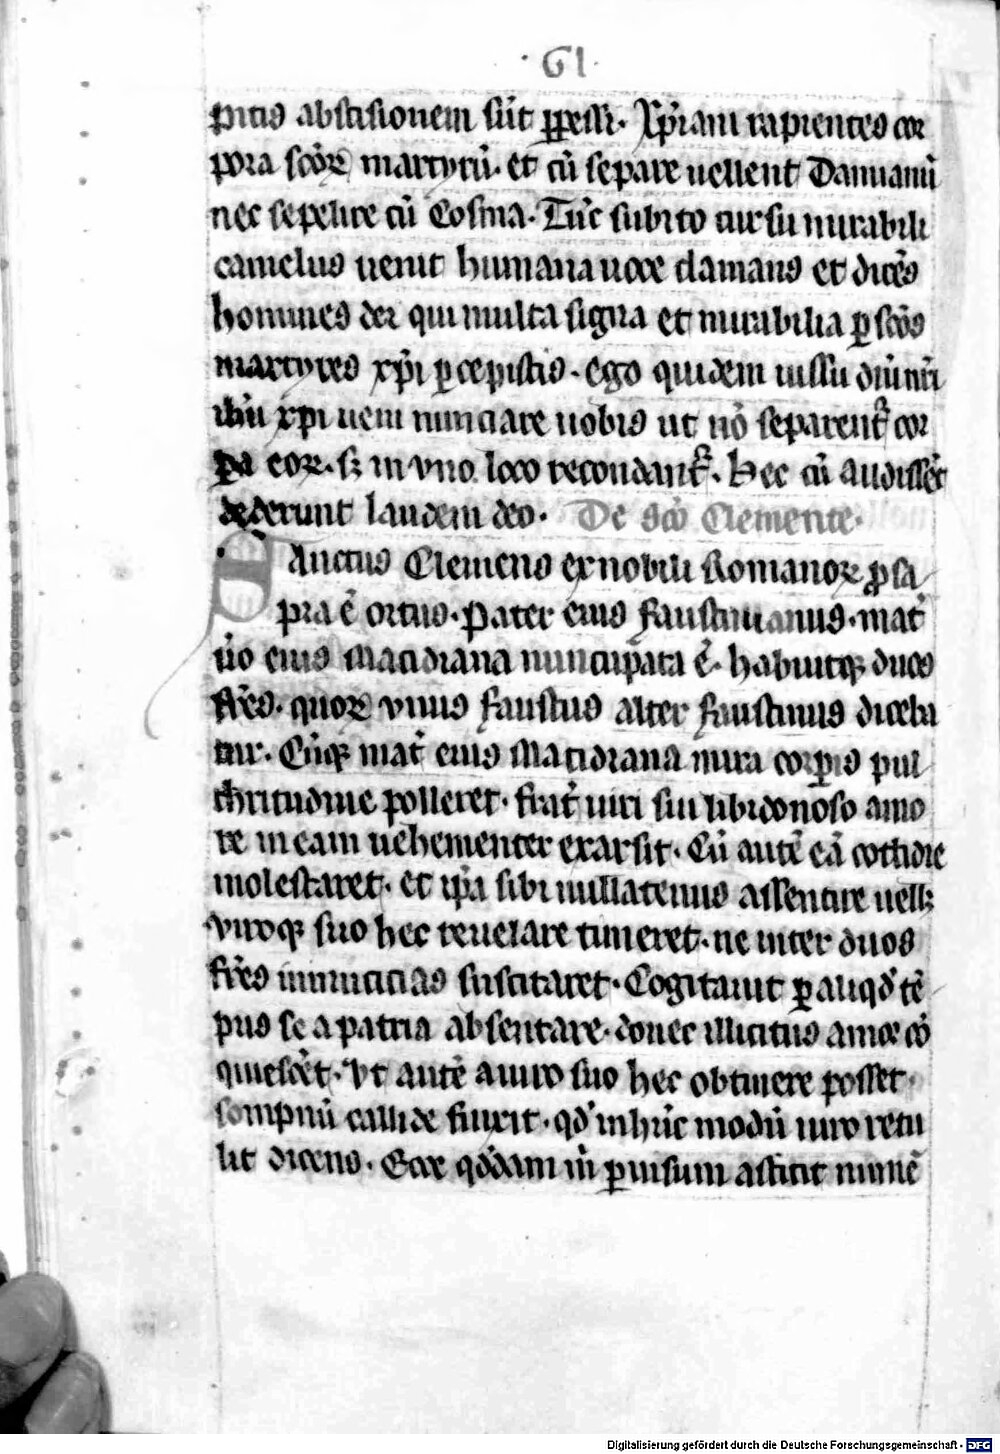 · GI ·
pitis abscisionem sūt ꝑpessi. Xp̄iani rapientes cor
pora sc̄oꝝ martyrū. et cū separe uellent Damianū
nec sepelire cū Cosma. Tūc subito cursu mirabili
camelus uenit humana uoce clamans et dicēs
homines dei qui multa signa et mirabilia ꝑ sc̄os
martyres xp̄i ꝑcepistis. ego quidem iussu dn̄i nr̄i
ih̄u xp̄i ueni nunciare uobis ut nō separent̄ cor
pa eoꝝ. sꝫ in vno loco recondant̄. Hec cū audissēt
dederunt laudem deo. De sc̄o Clemente.
Sanctus Clemens ex nobili Romanoꝝ ꝓsa
pia ē ortus. Pater eius faustinianus. mat̄
ūo eius Macidiana nuncupata ē. habuitqꝫ duos
fr̄es. quoꝝ vnus faustus alter faustinus diceba
tur. Cūqꝫ mat̄ eius Macidiana mira corꝑis pul
chritudine polleret. frat̄ uiri sui libidonoso amo
re in eam uehementer exarsit. Cū autē eā cothidie
molestaret. et ip̄a sibi nullatenus assentire uellꝫ
viroqꝫ suo hec reuelare timeret. ne inter duos
fr̄es inimicicias suscitaret. Cogitauit ꝑ aliqd̄ tē
pus se a patria absentare. donec illicitus amor cō
quiesc̄et. Vt autē a uiro suo hec obtinere posset.
sompnū callide finxit. qd̄ in hūc modū uiro retu
lit dicens. Ecce qd̄dam m̄ ꝑ uisum astitit numē